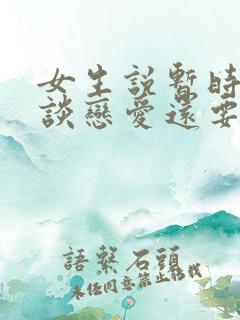 女生說暫時
談戀愛還要
語縈石頭
未经同意禁止搬载